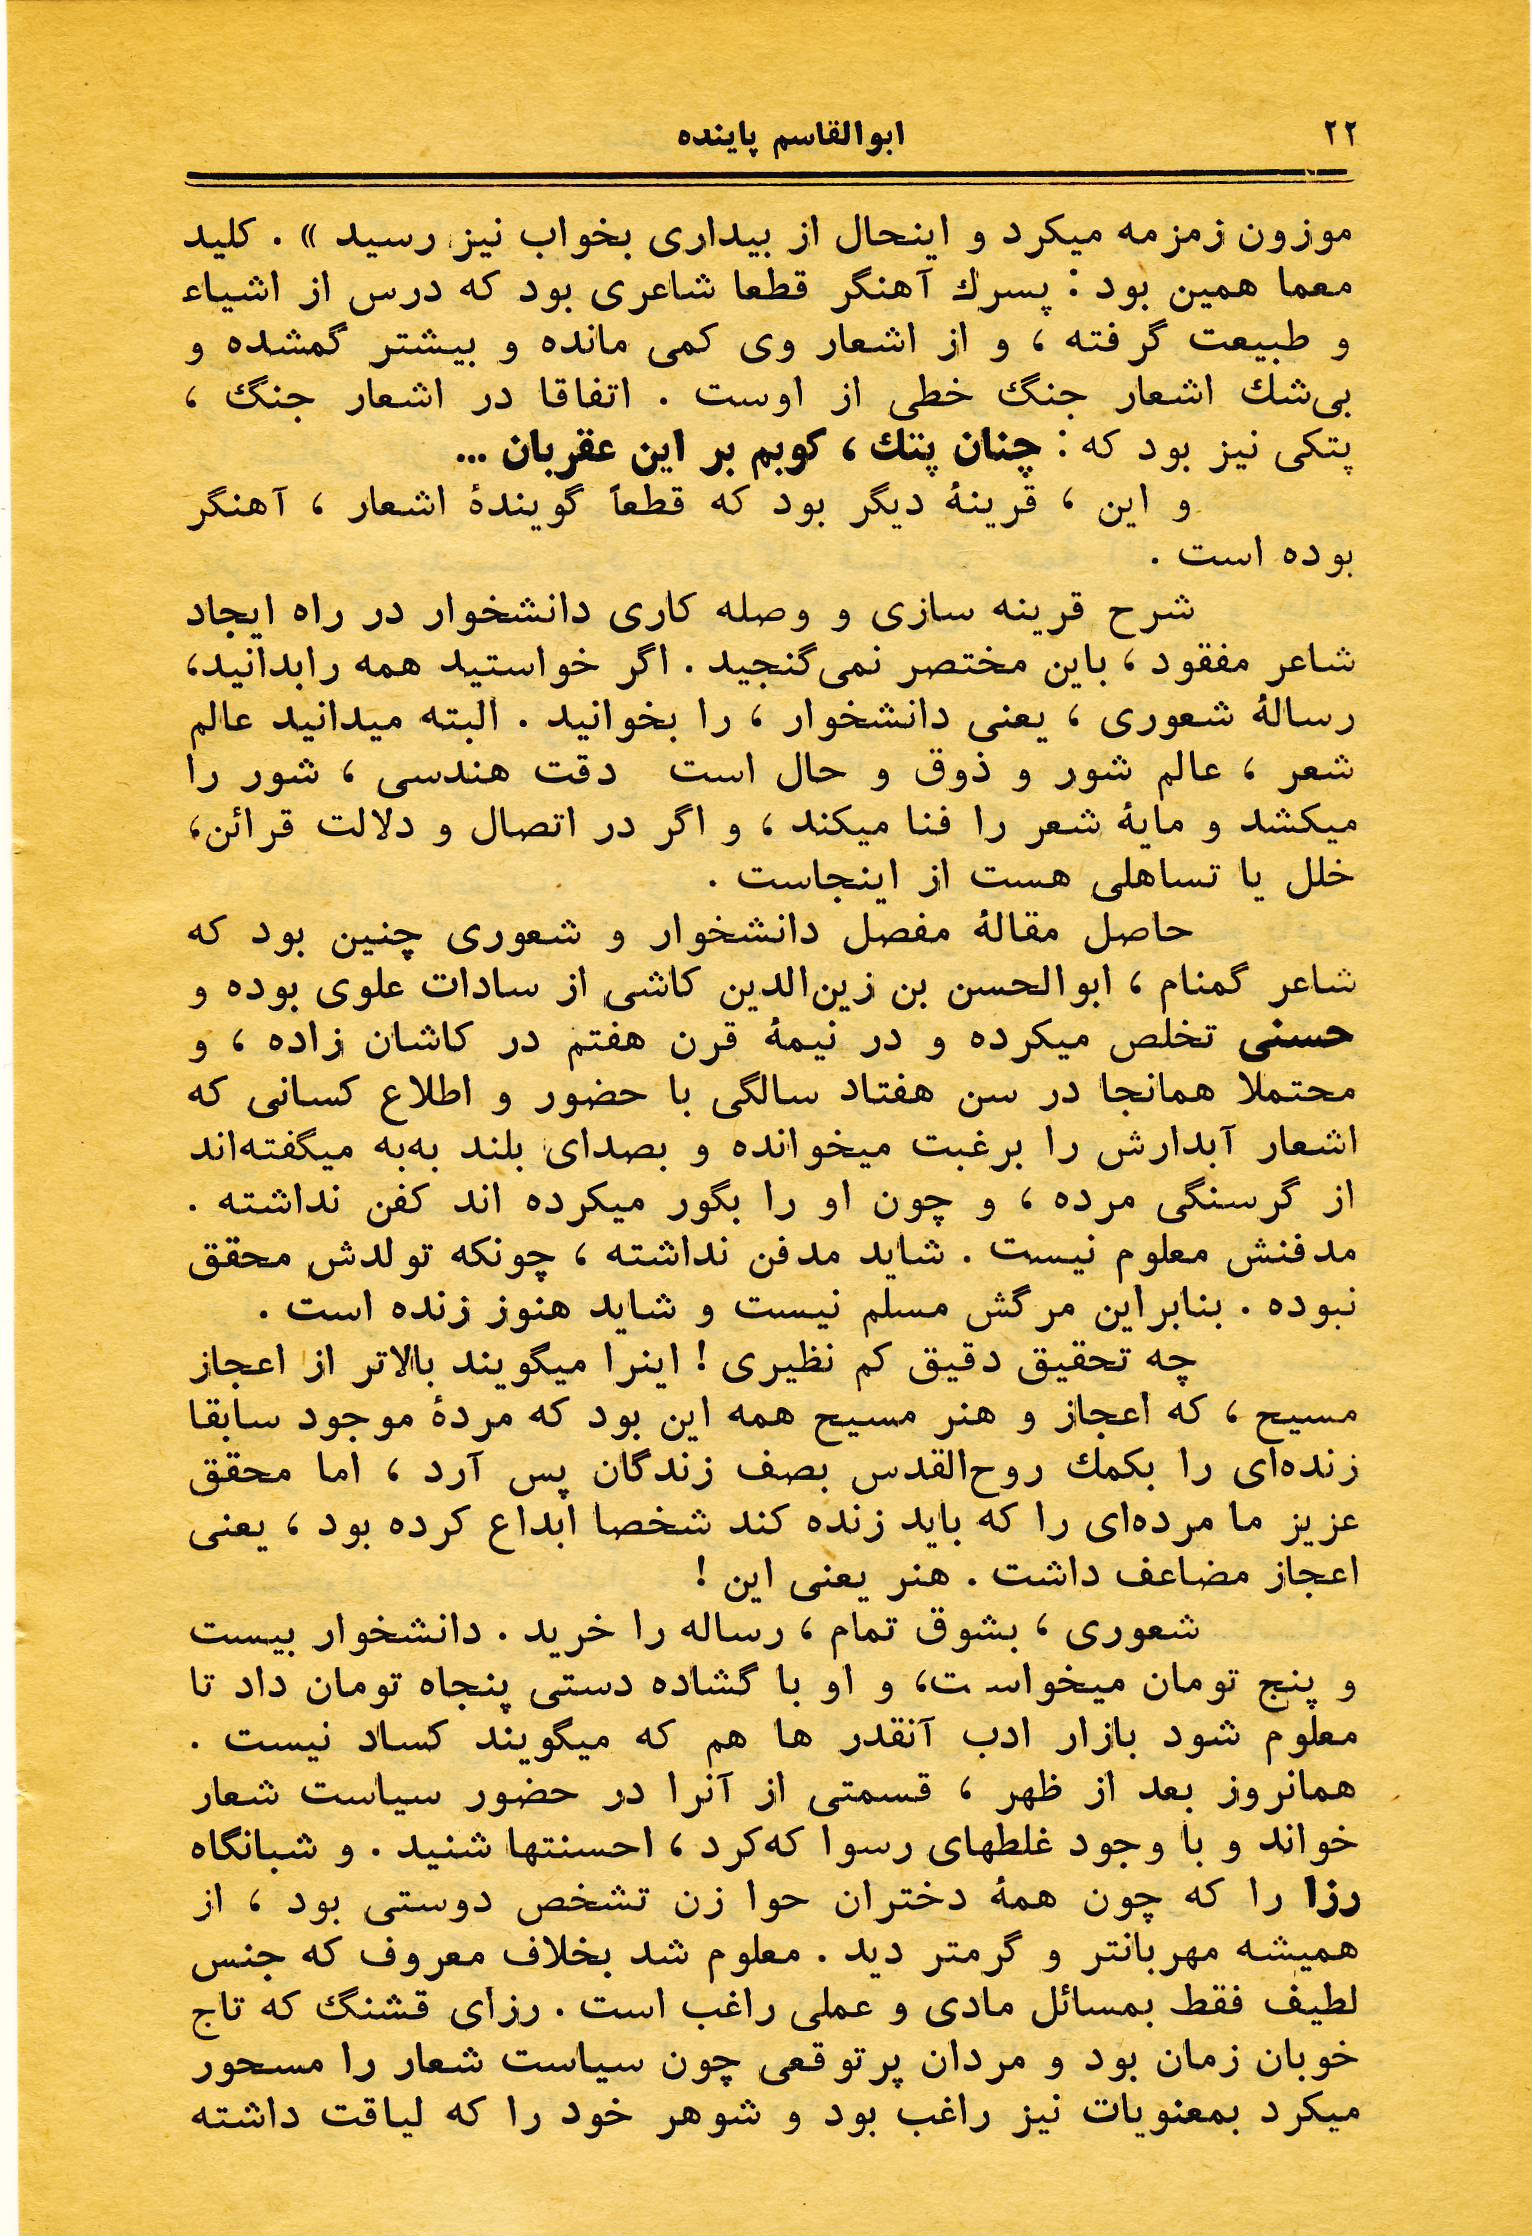 ۲۲
ابوالقاسم پاینده
موزون زمزمه میکرد و اینحال از بیداری بخواب نیز رسید » . کلید
معما همین بود : پسرك آهنگر قطعا شاعری بود که درس از اشیاء
و طبیعت گرفته ، و از اشعار وی کمی مانده و بیشتر گمشده و
بی‌شك اشعار جنگ خطی از اوست . اتفاقا در اشعار جنگ ،
پتکی نیز بود که : چنان پتك ، کوبم بر این عقربان ...
و این ، قرینهٔ دیگر بود که قطعاً گویندهٔ اشعار ، آهنگر
بوده است .
شرح قرینه سازی و وصله کاری دانشخوار در راه ایجاد
شاعر مفقود ، باین مختصر نمی‌گنجید . اگر خواستید همه رابدانید،
رسالهٔ شعوری ، یعنی دانشخوار ، را بخوانید . البته میدانید عالم
شعر ، عالم شور و ذوق و حال است دقت هندسی ، شور را
میکشد و مایهٔ شعر را فنا میکند ، و اگر در اتصال و دلالت قرائن،
خلل یا تساهلی هست از اینجاست .
حاصل مقالهٔ مفصل دانشخوار و شعوری چنین بود که
شاعر گمنام ، ابوالحسن بن زین‌الدین کاشی از سادات علوی بوده و
حسنی تخلص میکرده و در نیمهٔ قرن هفتم در کاشان زاده ، و
محتملا همانجا در سن هفتاد سالگی با حضور و اطلاع کسانی که
اشعار آبدارش را برغبت میخوانده و بصدای بلند به‌به میگفته‌اند
از گرسنگی مرده ، و چون او را بگور میکرده اند کفن نداشته .
مدفنش معلوم نیست . شاید مدفن نداشته ، چونکه تولدش محقق
نبوده . بنابراین مرگش مسلم نیست و شاید هنوز زنده است .
چه تحقیق دقیق کم نظیری ! اینرا میگویند بالاتر از اعجاز
مسیح ، که اعجاز و هنر مسیح همه این بود که مردهٔ موجود سابقا
زنده‌ای را بکمك روح‌القدس بصف زندگان پس آرد ، اما محقق
عزیز ما مرده‌ای را که باید زنده کند شخصا ابداع کرده بود ، یعنی
اعجاز مضاعف داشت . هنر یعنی این !
شعوری ، بشوق تمام ، رساله را خرید . دانشخوار بیست
و پنج تومان میخواست، و او با گشاده دستی پنجاه تومان داد تا
معلوم شود بازار ادب آنقدر ها هم که میگویند کساد نیست .
همانروز بعد از ظهر ، قسمتی از آنرا در حضور سیاست شعار
خواند و با وجود غلطهای رسوا که‌کرد ، احسنتها شنید . و شبانگاه
رزا را که چون همهٔ دختران حوا زن تشخص دوستی بود ، از
همیشه مهربانتر و گرمتر دید . معلوم شد بخلاف معروف که جنس
لطیف فقط بمسائل مادی و عملی راغب است . رزای قشنگ که تاج
خوبان زمان بود و مردان پرتوقعی چون سیاست شعار را مسحور
میکرد بمعنویات نیز راغب بود و شوهر خود را که لیاقت داشته